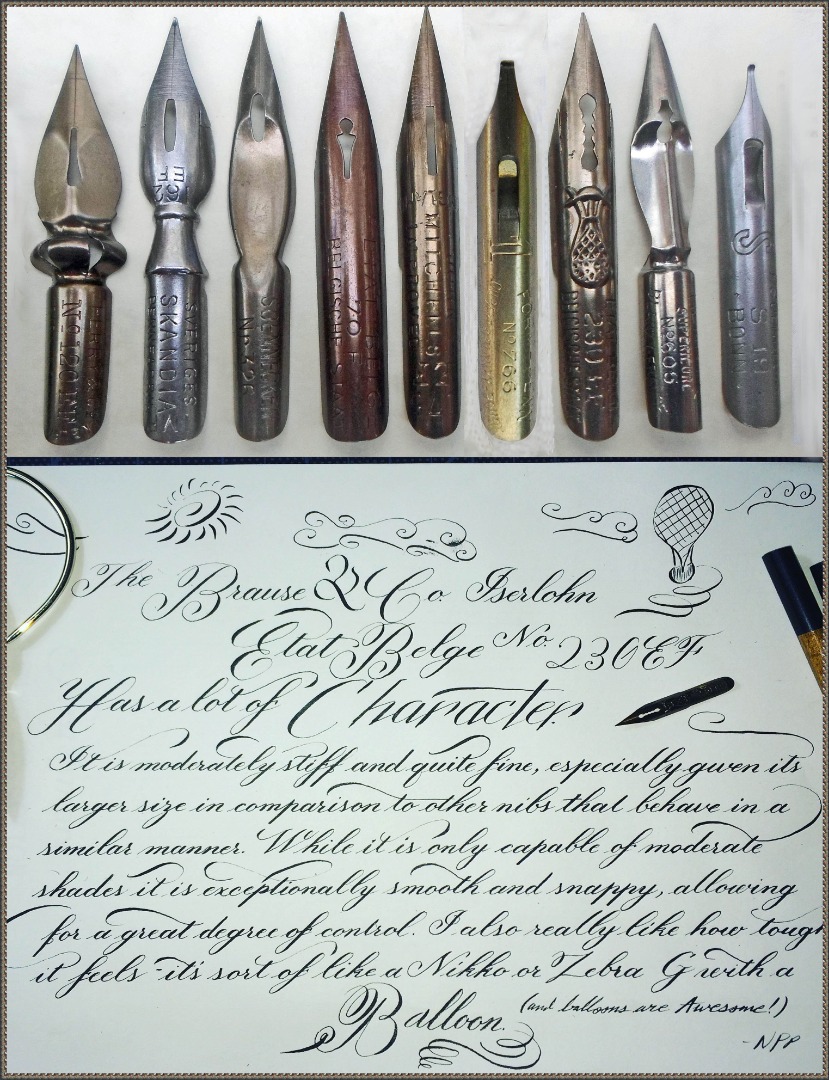 No 120
EF 62
SVERIGES
SKANDIA
No 70F
70 F
BELGISCHE STAAT
MITCHELL'S
No 766
230 EF
No 605
S
S 19
BONN
The Brause & Co. Iserlohn
Etat Belge No. 230EF
Has a lot of Character.
It is moderately stiff and quite fine, especially given its
larger size in comparison to other nibs that behave in a
similar manner. While it is only capable of moderate
shades it is exceptionally smooth and snappy, allowing
for a great degree of control. I also really like how tough
it feels - it's sort of like a Nikko or Zebra G with a
Balloon. (and balloons are Awesome!)
-NPP